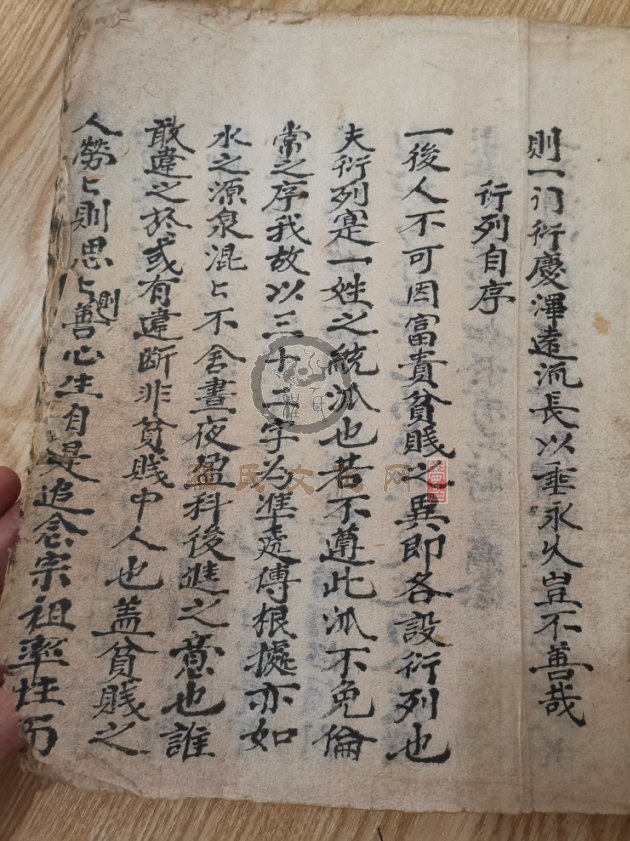 則一门衍慶渾遠流長以垂永久豈不善哉
衍列自序
一後人不可因富貴貧賤之異即各設衍列也
夫衍列寔一姓之統派也若不遵此派不免倫
常之序我故以三十二字为準處傳根據亦如
水之源泉混匕不舍晝夜盈科後進之意也誰
敢違之於或有違斷非貧賤中人也蓋貧賤之
人勞匕則思匕則善心生自是追念宗祖率性而